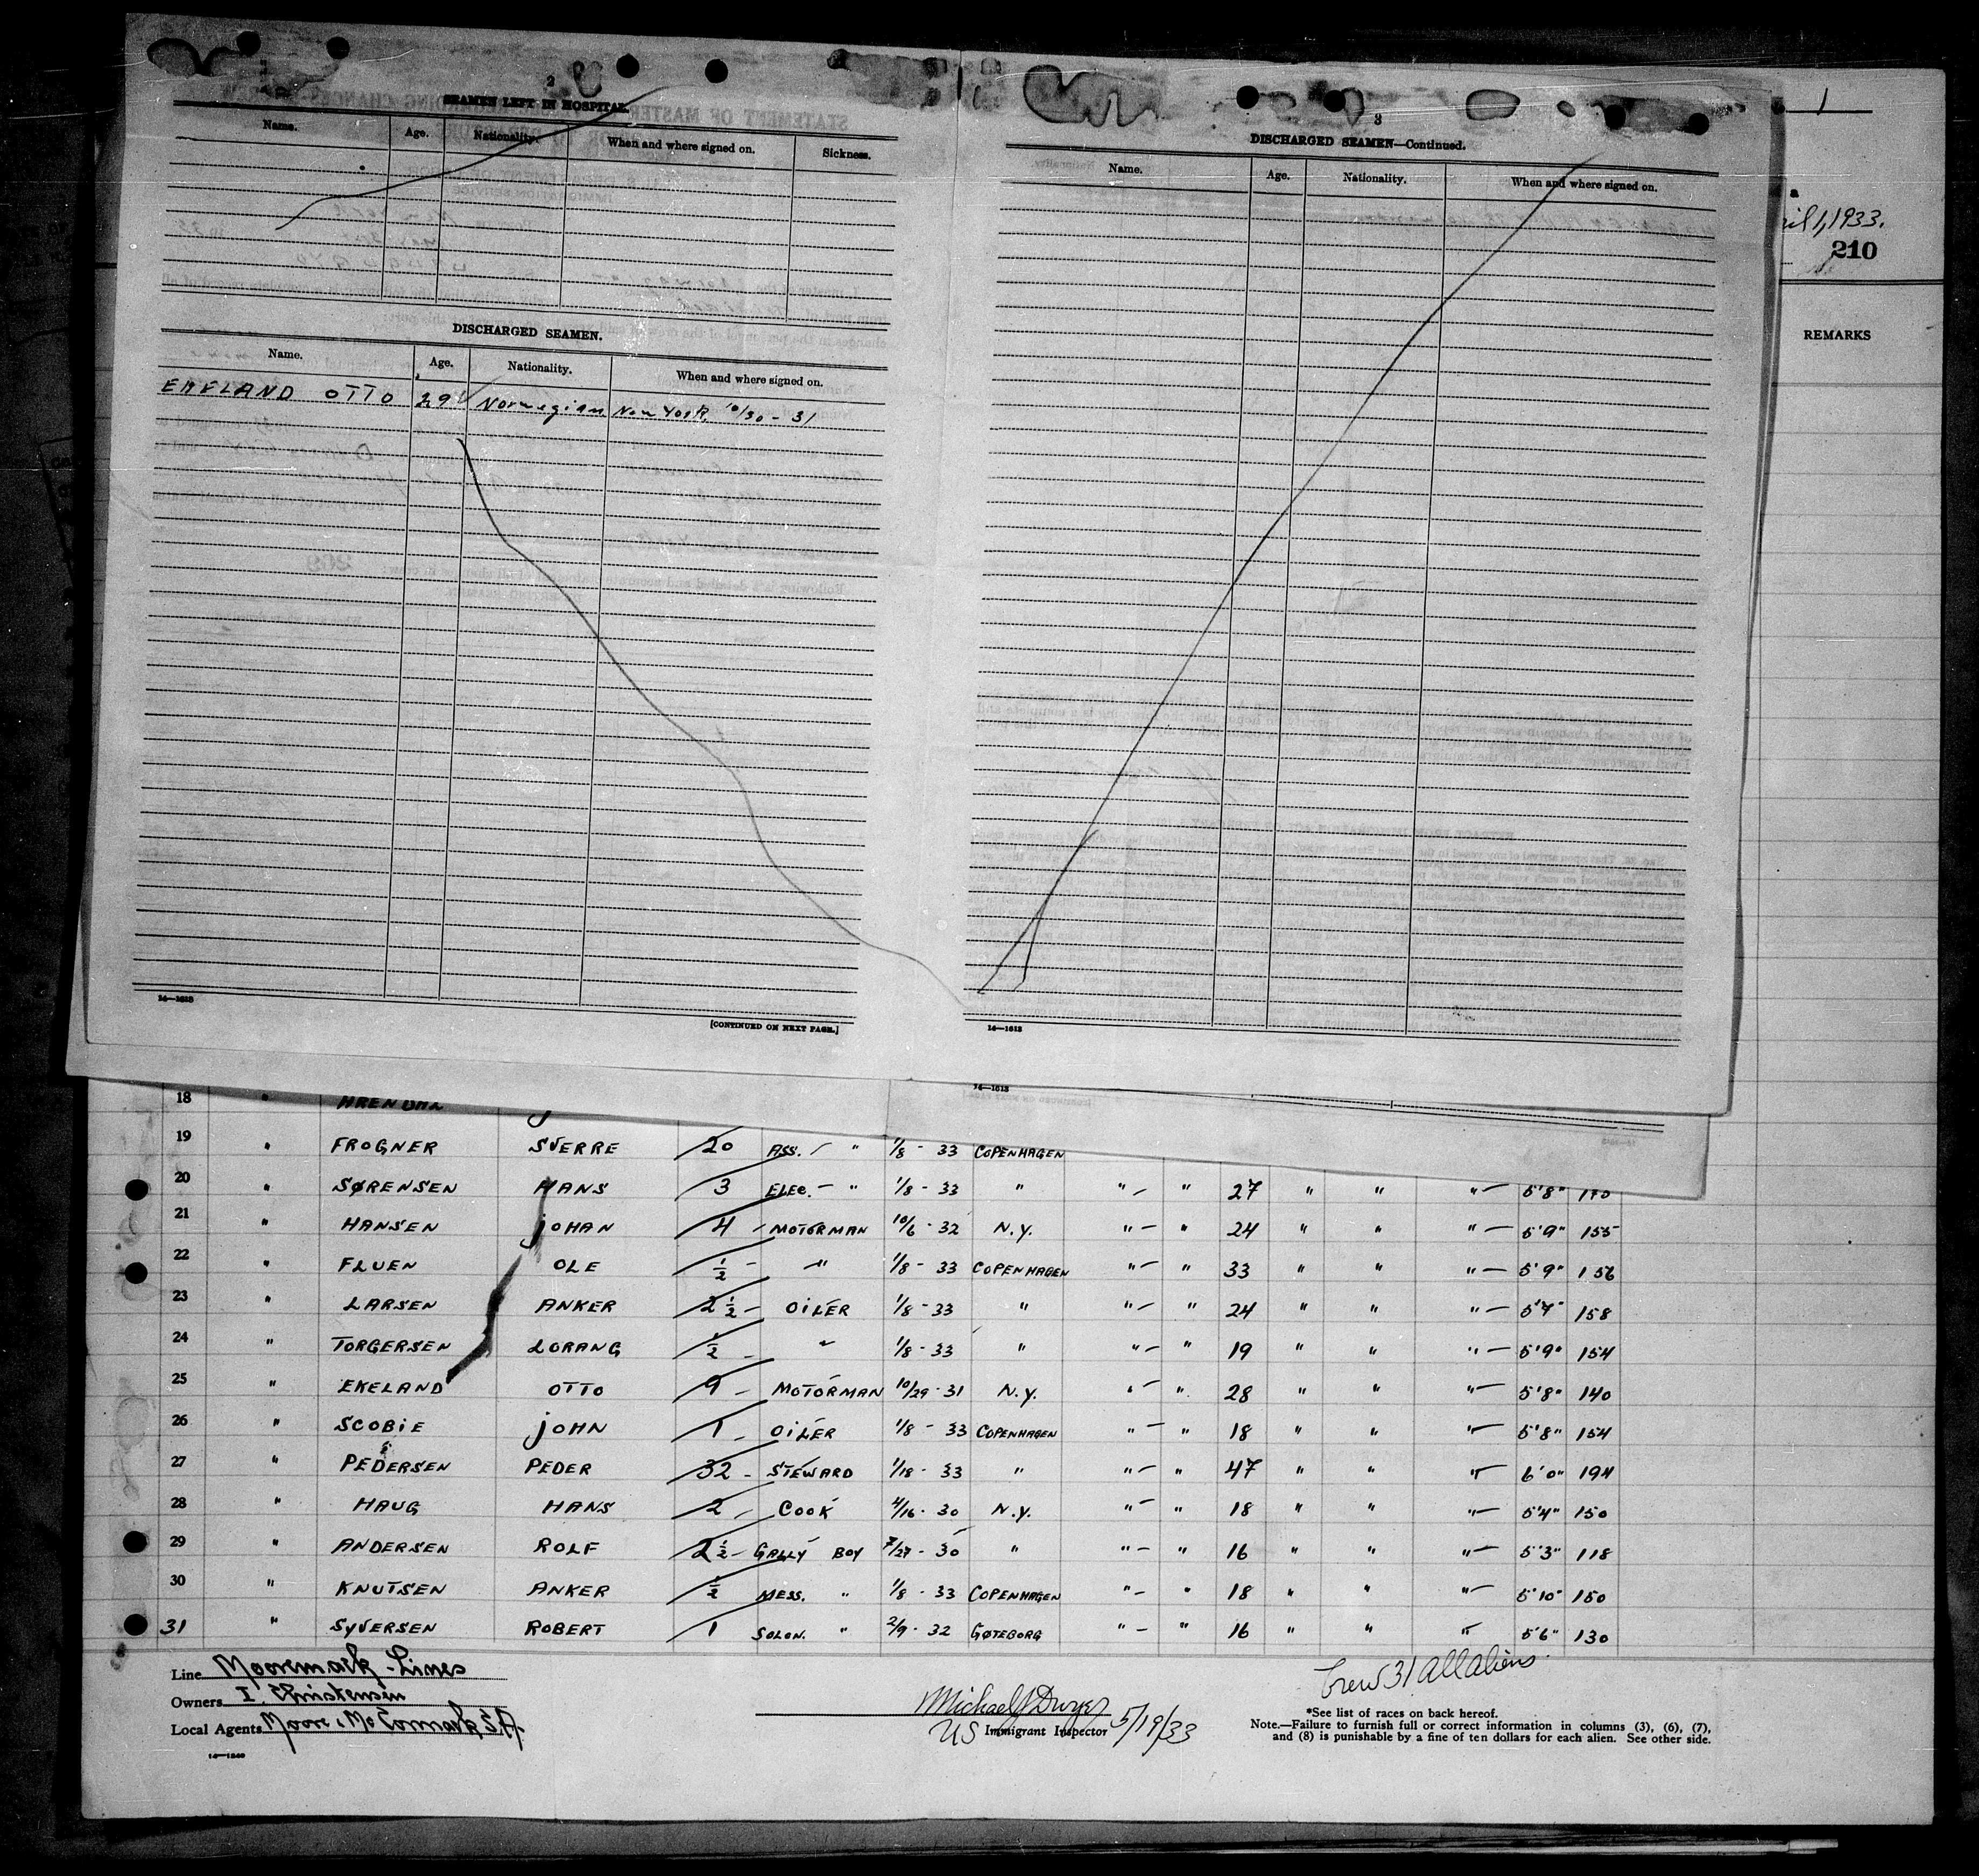 2
SEAMEN LEFT IN HOSPITAL.
Name. Age. Nationality. When and where signed on. Sickness.
DISCHARGED SEAMEN.
Name. Age. Nationality. When and where signed on.
EKELAND OTTO 29 Norwegian New York, 10/30 - 31
14—1613
[CONTINUED ON NEXT PAGE.]
3
DISCHARGED SEAMEN—Continued.
Name. Age. Nationality. When and where signed on.
14—1613
1
ril 1, 1933.
210
REMARKS
14—1613
18 "
19 " FROGNER SVERRE 20 ASS. " 1/8 - 33 COPENHAGEN
20 " SØRENSEN HANS 3 ELEC. - " 1/8 - 33 " " - " 27 " " " - 5'8" 170
21 " HANSEN JOHAN 4 - MOTORMAN 10/6 - 32 N.Y. " - " 24 " " " - 5'9" 155
22 " FLUEN OLE 1/2 - " 1/8 - 33 COPENHAGEN " - " 33 " " " - 5'9" 156
23 " LARSEN ANKER 2 1/2 - OILER 1/8 - 33 " " - " 24 " " " - 5'7" 158
24 " TORGERSEN LORANG 1/2 - " 1/8 - 33 " " - " 19 " " " - 5'9" 154
25 " EKELAND OTTO 9 - MOTORMAN 10/29 - 31 N.Y. " - " 28 " " " - 5'8" 140
26 " SCOBIE JOHN 1 - OILER 1/8 - 33 COPENHAGEN " - " 18 " " " - 5'8" 154
27 " PEDERSEN PEDER 32 - STEWARD 1/18 - 33 " " - " 47 " " " - 6'0" 194
28 " HAUG HANS 2 - COOK 4/16 - 30 N.Y. " - " 18 " " " - 5'4" 150
29 " ANDERSEN ROLF 2 1/2 - GALLY BOY 7/27 - 30 " " - " 16 " " " - 5'3" 118
30 " KNUTSEN ANKER 1/2 MESS. " 1/8 - 33 COPENHAGEN " - " 18 " " " - 5'10" 150
31 " SYVERSEN ROBERT 1 SOLON. " 2/9 - 32 GØTEBORG " - " 16 " " " 5'6" 130
Line Mooremack Lines
Owners I. Christensen
Local Agents Moore & McCormack S.A.
14—1240
Michael J Dwyer
US Immigrant Inspector 5/19/33
Crew 31 all aliens.
*See list of races on back hereof.
Note.—Failure to furnish full or correct information in columns (3), (6), (7),
and (8) is punishable by a fine of ten dollars for each alien. See other side.